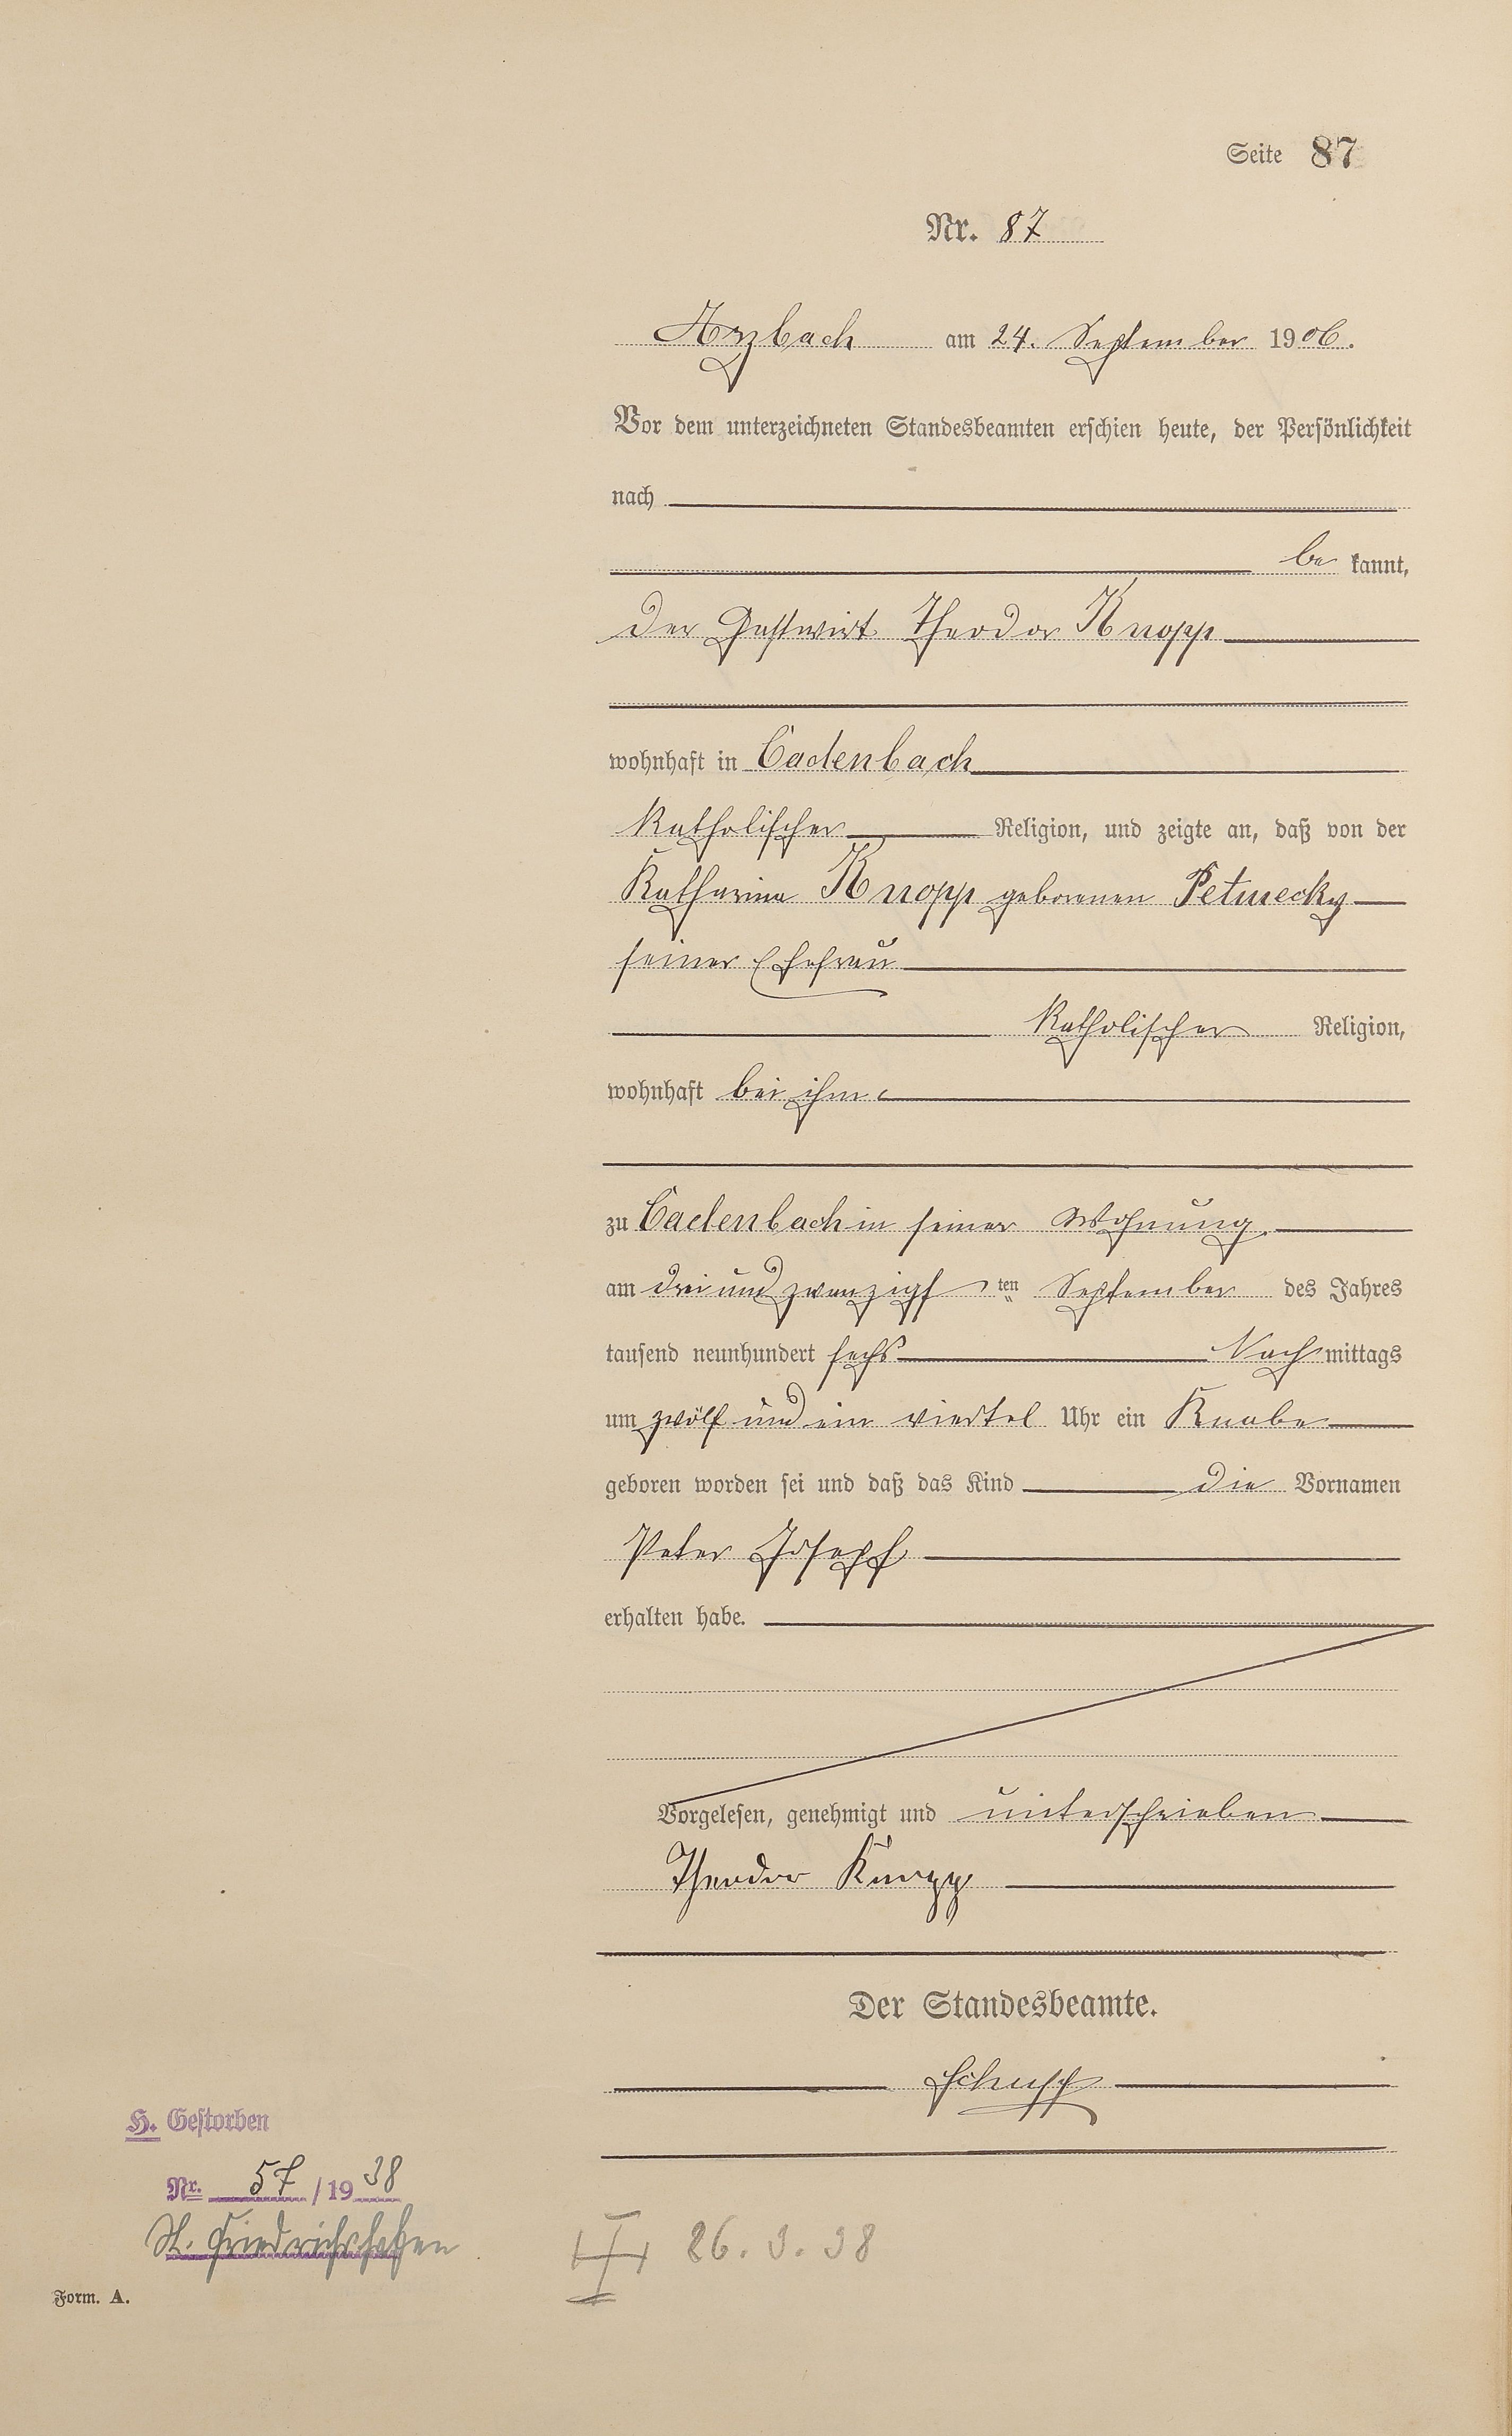 Seite 87
Nr. 87
Arzbach am 24. September 1906.
Vor dem unterzeichneten Standesbeamten erschien heute, der Persönlichkeit
nach
be kannt,
der Gastwirt Theodor Knopp
wohnhaft in Cadenbach
katholischer Religion, und zeigte an, daß von der
Katharina Knopp geborenen Petmecky
seiner Ehefrau
katholischer Religion,
wohnhaft bei ihm
zu Cadenbach in seiner Wohnung
am drei und zwanzigsten September des Jahres
tausend neunhundert sechs Nachmittags
um zwölf und ein viertel Uhr ein Knabe
geboren worden sei und daß das Kind die Vornamen
Peter Joseph
erhalten habe.
Vorgelesen, genehmigt und unterschrieben
Theodor Knopp
Der Standesbeamte.
H. Gestorben
Nr. 57 /1938
St. Friedrichshafen
26. 3. 38
Form. A.